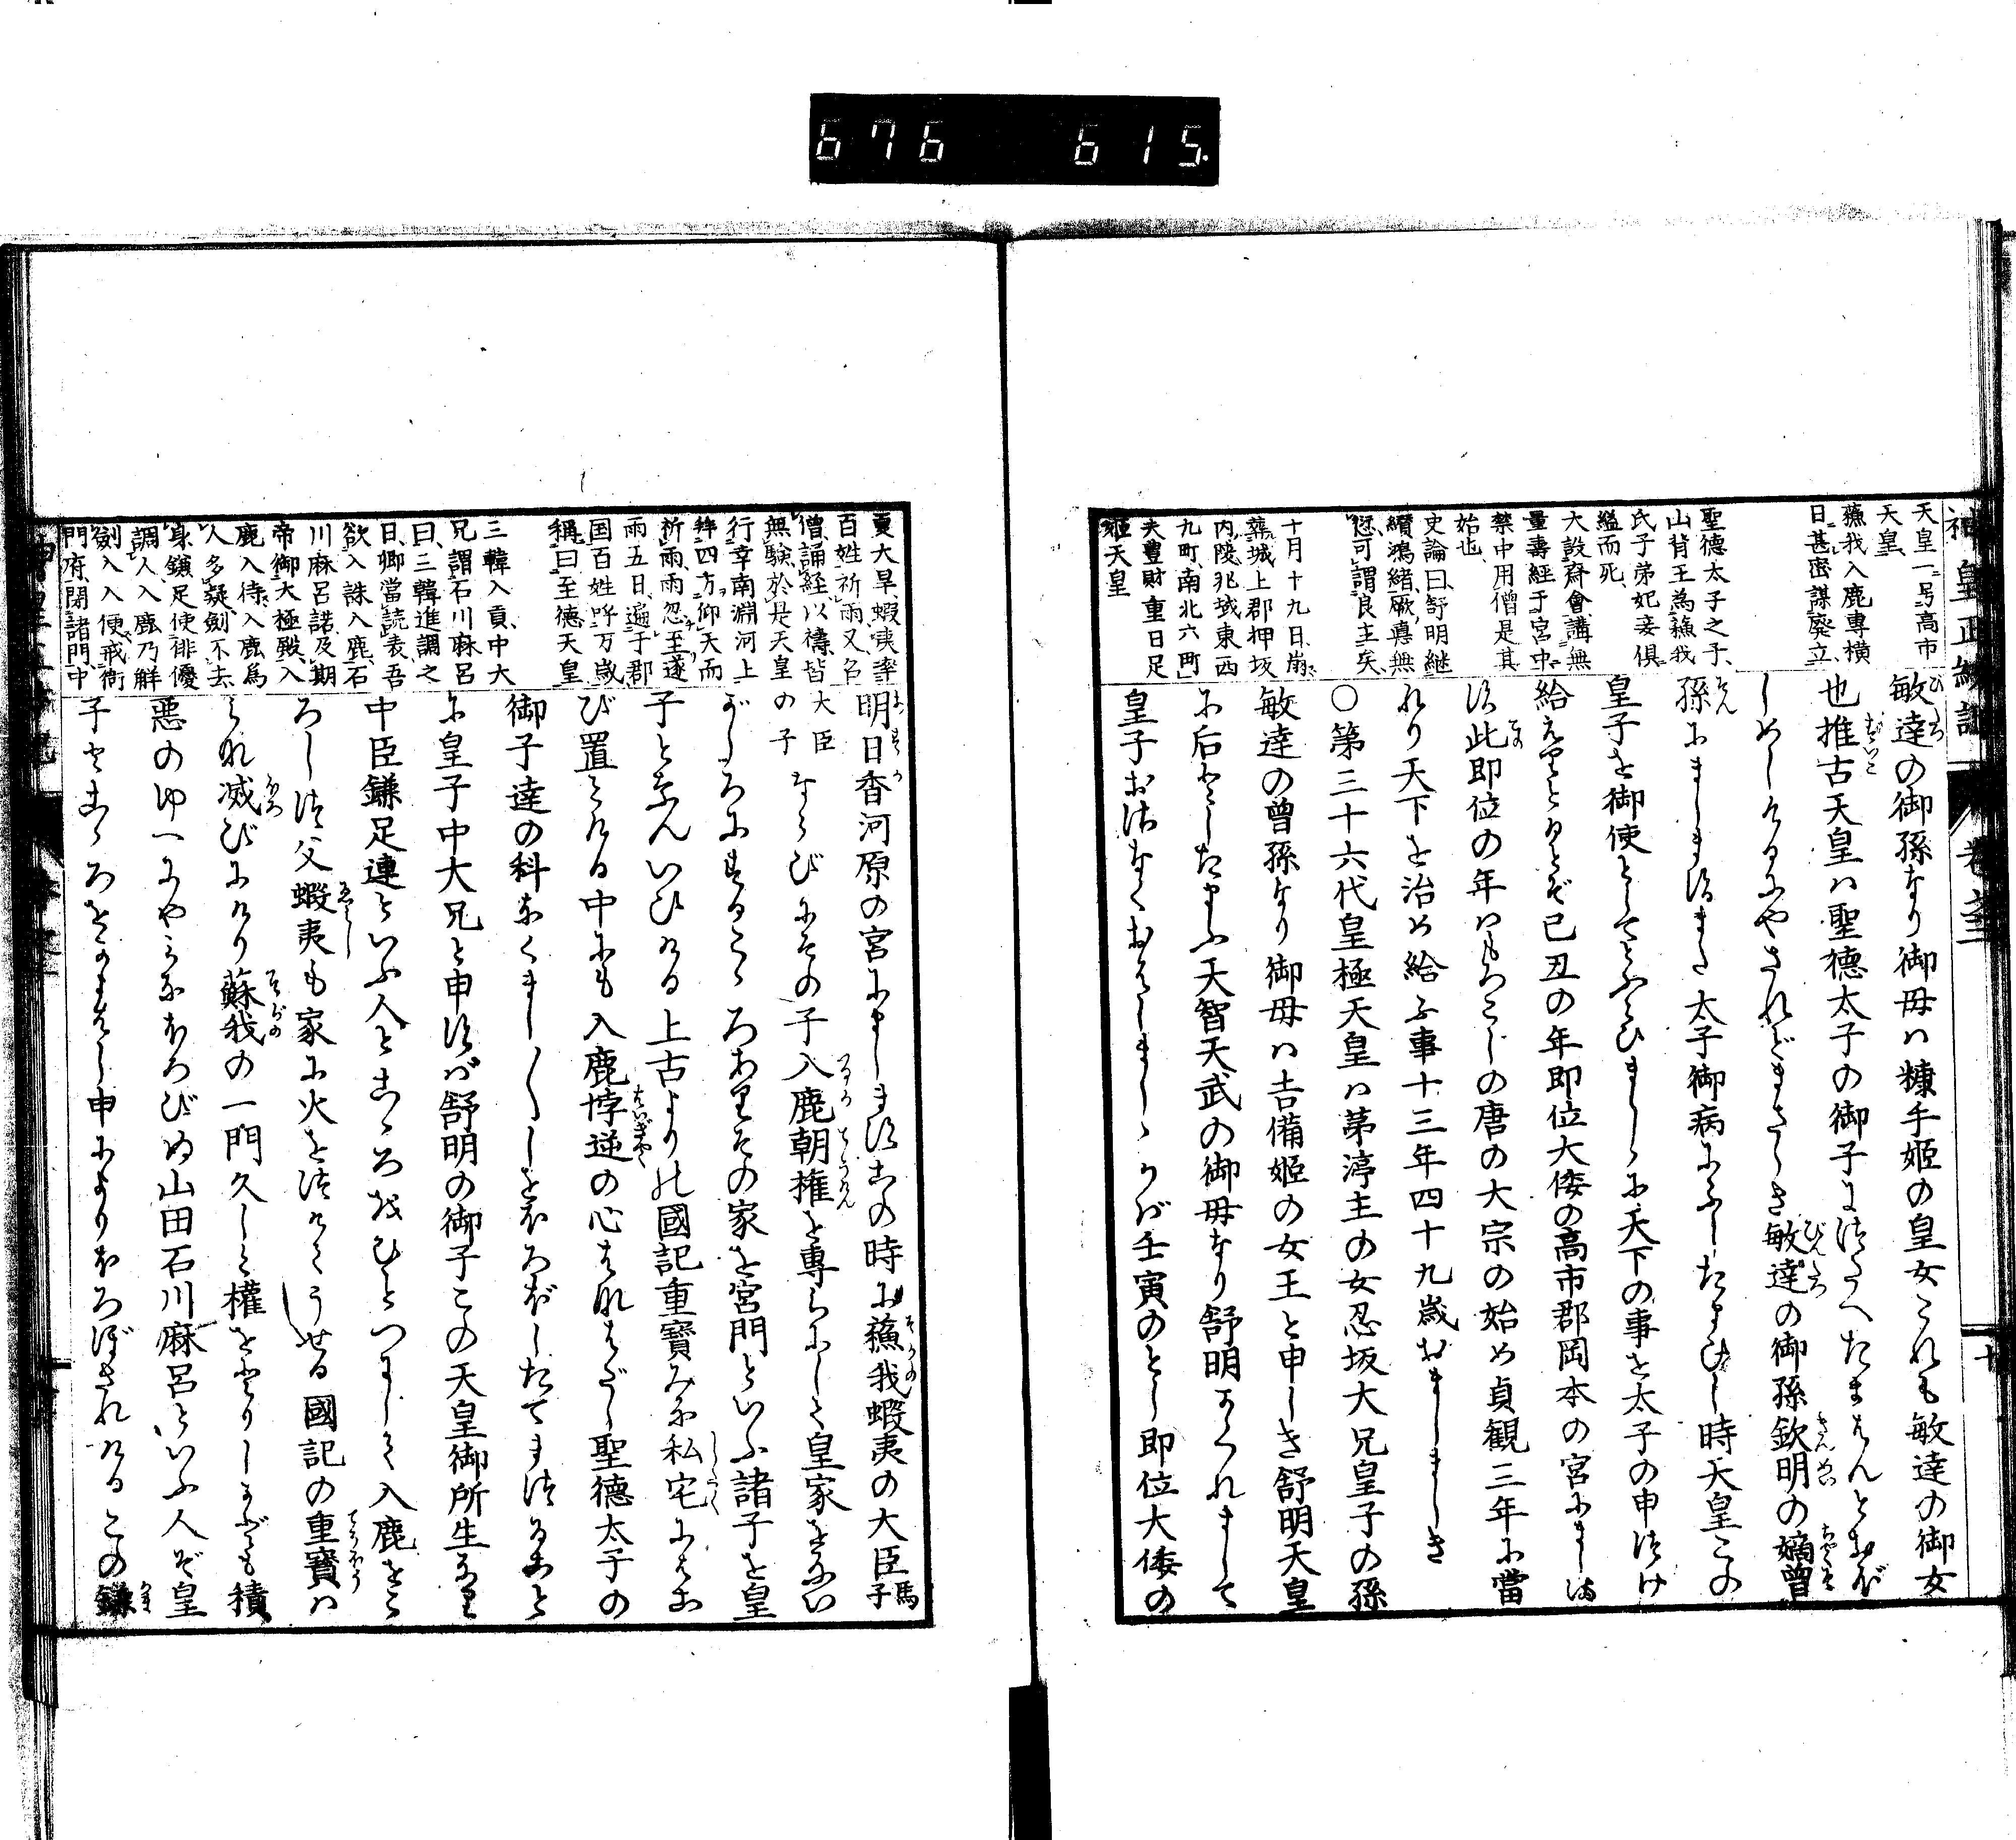 676 615.
神皇正統記 巻之三 十
天皇一号高市
天皇
蘓我入鹿專横
日甚密謀廢立
聖德太子之子
山背王為蘓我
氏子弟妃妾倶
縊而死
大設齋會講無
量壽經于宮中
禁中用僧是其
始也
史論曰舒明継
纉鴻緒厥悳無
愆可謂良主矣
十月十九日崩
葬城上郡押坂
内陵兆域東西
九町南北六町
天豊財重日足
姫天皇
敏達の御孫なり御母ハ糠手姫の皇女これも敏達の御女
也推古天皇ハ聖徳太子の御子につたへたまはんとおぼ
しめしけるにやされどまさしき敏達の御孫欽明の嫡曽
孫にましますまた太子御病にふしたまひし時天皇この
皇子を御使としてとふらひましゝに天下の事を太子の申つけ
給えりとぞ已丑の年即位大倭の高市郡岡本の宮にましま
す此即位の年ハもろこしの唐の大宗の始め貞観三年に當
れり天下を治め給ふ事十三年四十九歳おましましき
○第三十六代皇極天皇ハ茅渟王の女忍坂大兄皇子の孫
敏達の曽孫なり御母ハ吉備姫の女王と申しき舒明天皇
に后としたまふ天智天武の御母なり舒明かくれまして
皇子おさなくおはしましゝかば壬寅のとし即位大倭の
夏大旱蝦夷率
百姓祈雨又名
僧誦経以禱皆
無験於是天皇
行幸南淵河上
拜四方仰天而
祈雨雨忽至遂
雨五日遍于郡
国百姓呼万歳
稱曰至德天皇
三韓入貢中大
兄謂石川麻呂
曰三韓進調之
日卿當読表吾
欲入誅入鹿石
川麻呂諾及期
帝御大極殿入
鹿入待入鹿為
人多疑剣不去
身鎌足使俳優
調人入鹿乃觧
剣入入便戒衛
門府閉諸門中
明日香河原の宮にましますこの時に蘓我蝦夷の大臣馬子
大臣の子ならびにその子入鹿朝権を專らにして皇家をないが
しろにするこゝろありその家を宮門といふ諸子を皇
子となんいひける上古よりの國記重寳みな私宅にはこ
び置てける中にも入鹿悖逆の心はなはだし聖徳太子の
御子達の科なくましましゝをほろぼしたてまつるあと
に皇子中大兄と申すハ舒明の御子この天皇御所生なり
中臣鎌足連といふ人とこゝろをひとつにして入鹿をこ
ろしつ父蝦夷も家に火をつけてうせる國記の重寳ハ
みな滅びにけり蘇我の一門久しく權をとりしかども積
悪のゆへにやみなほろびぬ山田石川麻呂といふ人ぞ皇
子とこゝろをかよはし申によりほろぼされけるこの鎌